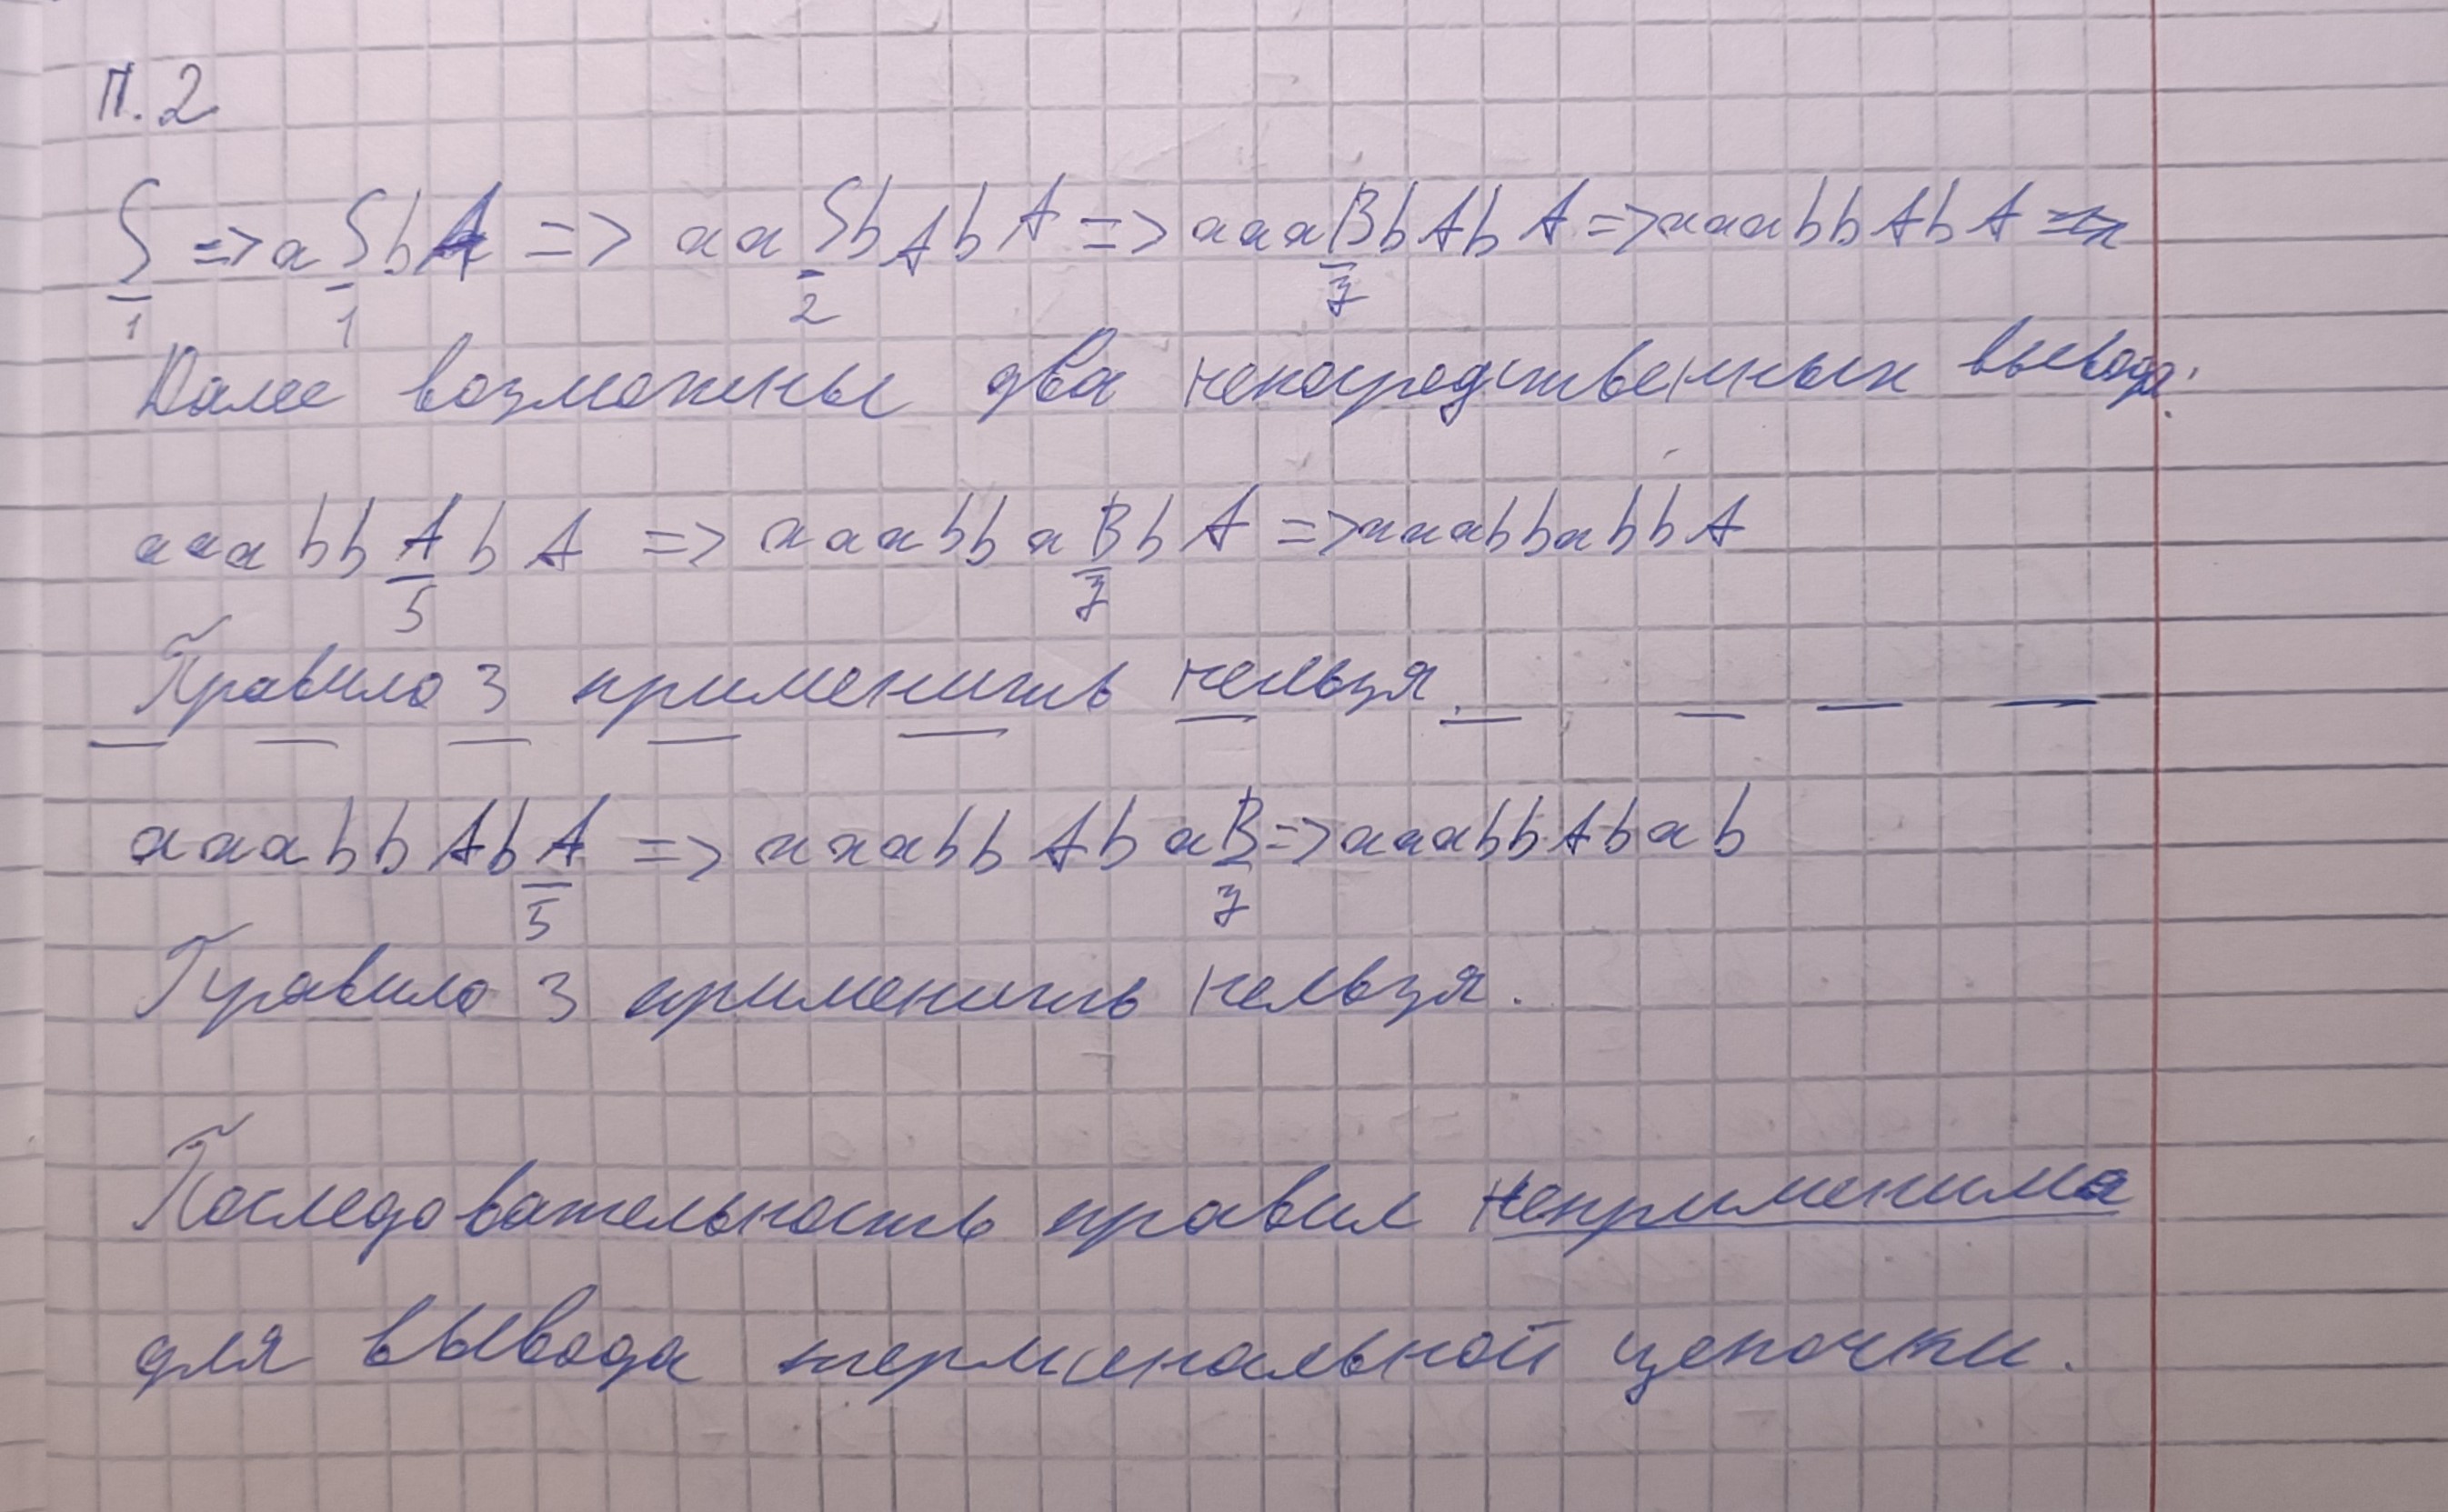 п. 2
S => aSbA => aaSbAbA => aaaBbAbA => aaabbAbA
1 1 2 7
Далее возможны два непосредственных вывода:
aaabbAbA => aaabbaBbA => aaabbabbA
5 7
Правило 3 применить нельзя.
aaabbAbA => aaabbAbaB => aaabbAbab
5 7
Правило 3 применить нельзя.
Последовательность правил неприменима
для вывода терминальной цепочки.